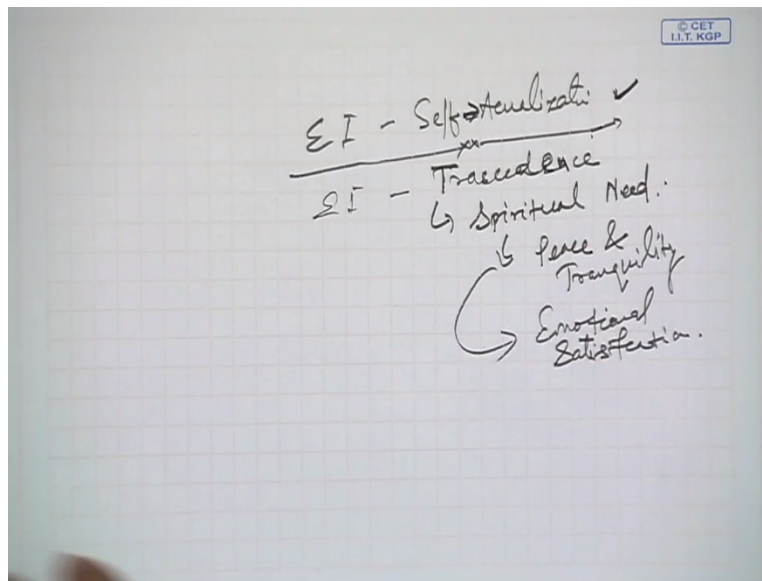 © CET
I.I.T. KGP
EI - Self Acualizati ✓
EI - Trascedence
↳ Spiritual Need.
↳ Peace &
Tranquility
Emotional
Satisfaction.